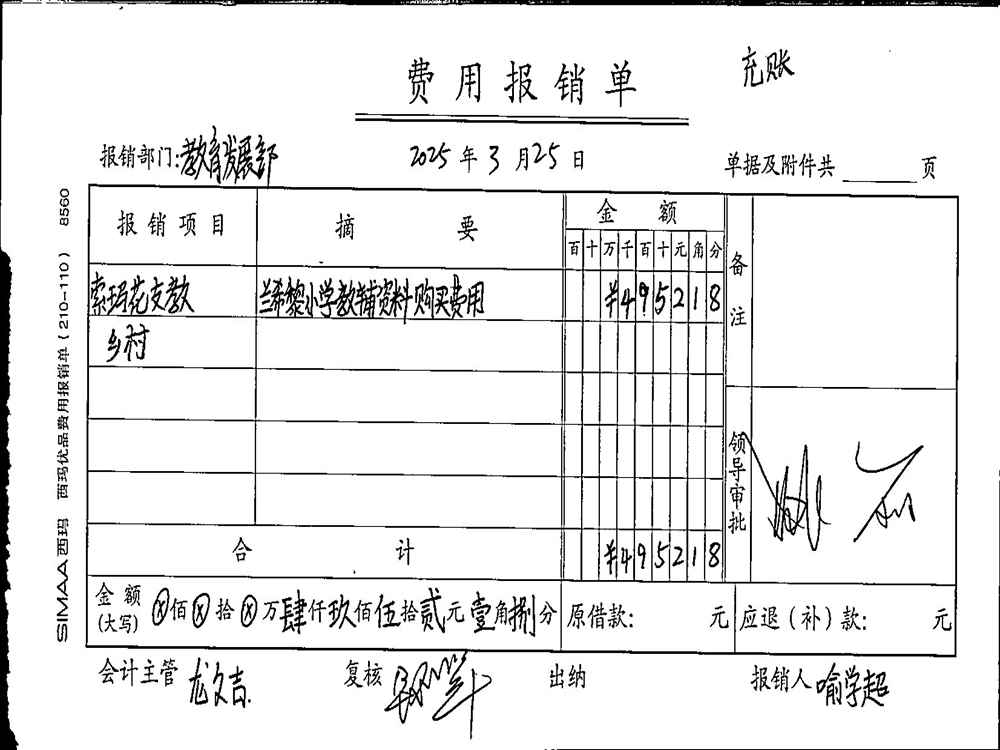 充账
费用报销单
报销部门:教育发展部 2025年3月25日 单据及附件共 页
报销项目 摘要 金额 备注
百十万千百十元角分
索玛花支教 兰希黎小学教辅资料购买费用 ¥495218
乡村
领导审批
合计 ¥495218
金额(大写) ⓧ佰ⓧ拾ⓧ万肆仟玖佰伍拾贰元壹角捌分 原借款: 元 应退(补)款: 元
会计主管 龙文吉 复核 出纳 报销人 喻学超
SIMAA 西玛 西玛优品费用报销单(210-110) 8560